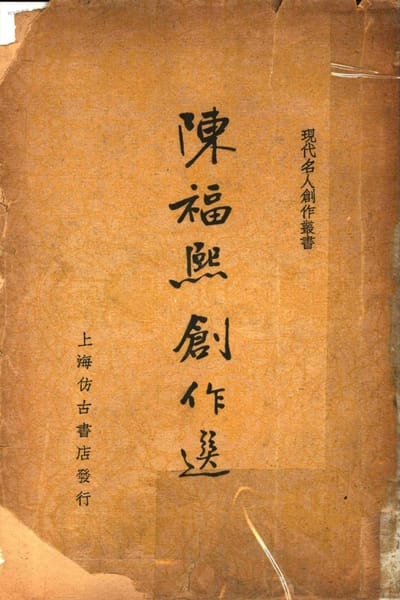 現代名人創作叢書
陳福熙創作選
上海仿古書店發行